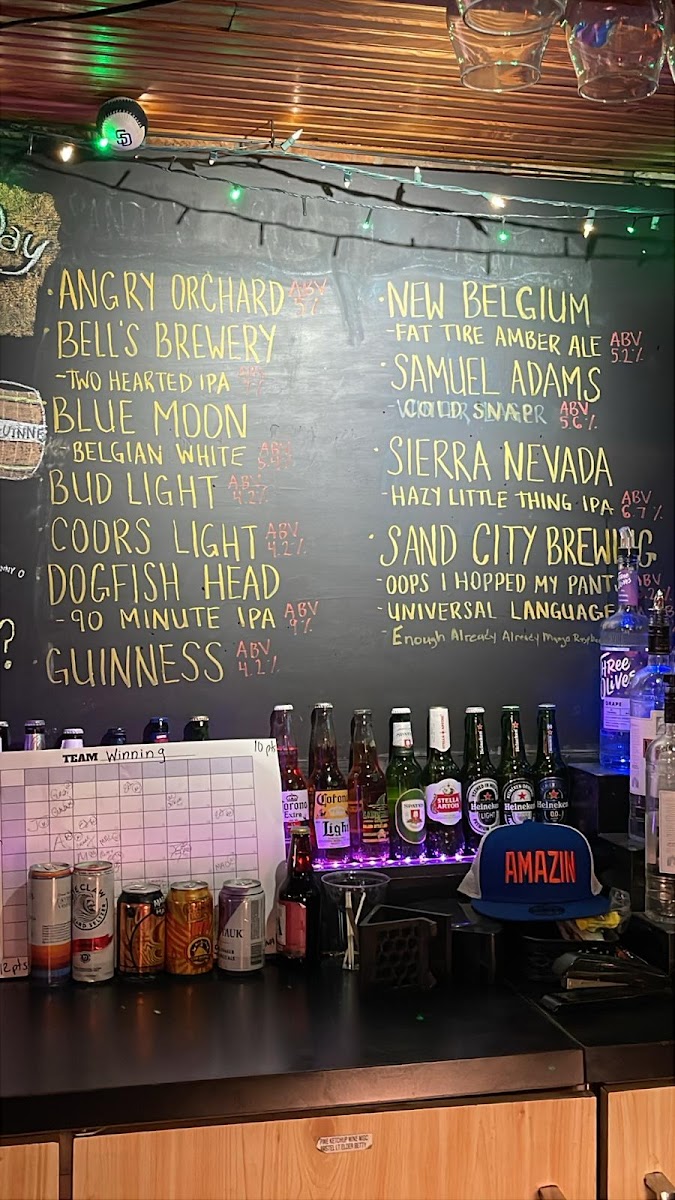 Day
UINNE
?
· ANGRY ORCHARD ABV 5%
BELL'S BREWERY
-TWO HEARTED IPA
· BLUE MOON
- BELGIAN WHITE ABV 5.4%
BUD LIGHT ABV 4.2%
· COORS LIGHT ABV 4.2%
DOGFISH HEAD
-90 MINUTE IPA ABV 9%
GUINNESS ABV 4.2%
· NEW BELGIUM
-FAT TIRE AMBER ALE ABV 5.2%
· SAMUEL ADAMS
COLD SNAP ABV 5.6%
· SIERRA NEVADA
-HAZY LITTLE THING IPA ABV 6.7%
· SAND CITY BREWING
-OOPS I HOPPED MY PANT
-UNIVERSAL LANGUAGE
- Enough Already Already Mango
THREE OLIVES
GRAPE
TEAM Winning
10 pts
12 pts
Corona Extra
Corona Light
STELLA ARTOIS
Heineken LIGHT
Heineken
Heineken 0.0
AMAZIN
THE CLAW
HARD SELTZER